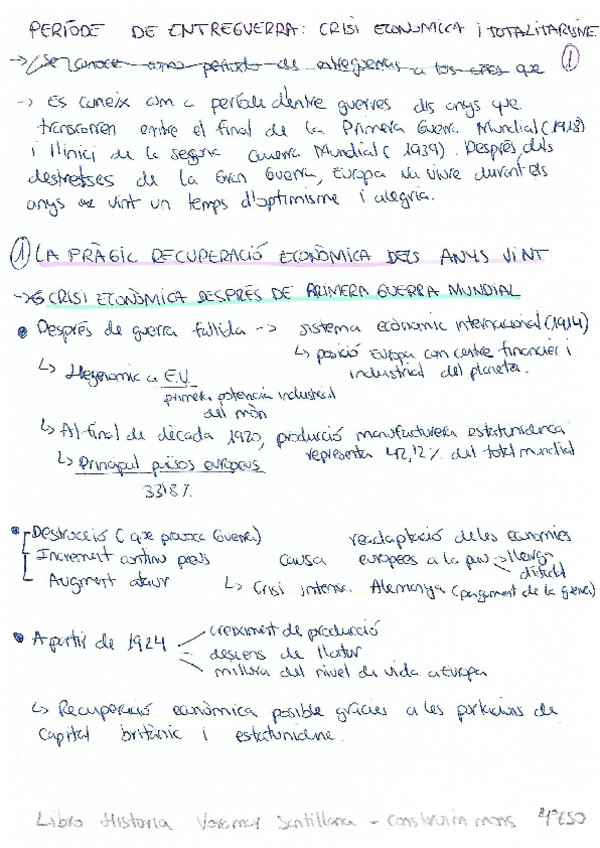 PERÍODE DE ENTREGUERRA: CRISI ECONÒMICA i TOTALITARISME
-> Se conoce como período de entreguerras a los años que
①
-> Es coneix com a període d'entre guerres dls anys que
transcorren entre el final de la Primera Guerra Mundial (1918)
i l'inici de la segona Guerra Mundial (1939). Després dels
destretses de la Gran Guerra, Europa va viure durant els
anys vint un temps d'optimisme i alegria.
① LA FRÀGIL RECUPERACIÓ ECONÒMICA DELS ANYS VINT
-> CRISI ECONÒMICA DESPRÉS DE PRIMERA GUERRA MUNDIAL
• Després de guerra fallida -> sistema econòmic internacional (1914)
↳ posició Europa com centre financier i
industrial del planeta.
↳ Hegemonic a E.U
primera potencia industrial
del món
↳ Al final de dècada 1920, producció manufacturera estatunidenca
representa 42,2% del total mundial
↳ Principal països europeus
33'8%
• Destrucció (que provoca Guerra)
Increment continu preus
Augment atur
causa
readaptació de les economies
europees a la pau -> llarga
i difícil
↳ Crisi intensa Alemanya (pagament de la guerra)
• A partir de 1924
creiximent de producció
descens de l'atur
millora del nivel de vida a Europa
↳ Recuperació econòmica posible gràcies a les portacions de
Capital britànic i estatunidenc.
Libro Historia Voramar Santillana - construïm mons 4ºESO